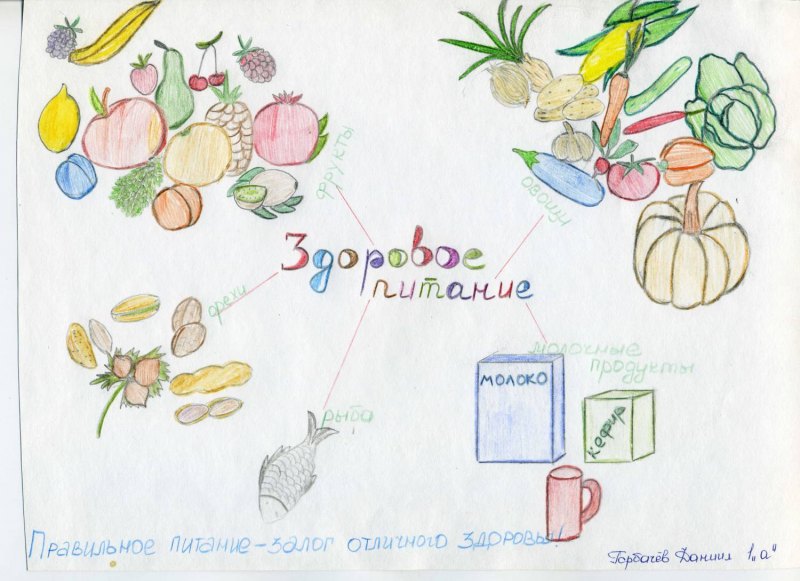 фрукты
овощи
Здоровое
питание
орехи
молочные
продукты
молоко
кефир
рыба
Правильное питание-залог отличного здоровья!
Горбачёв Даниил 1 „а"